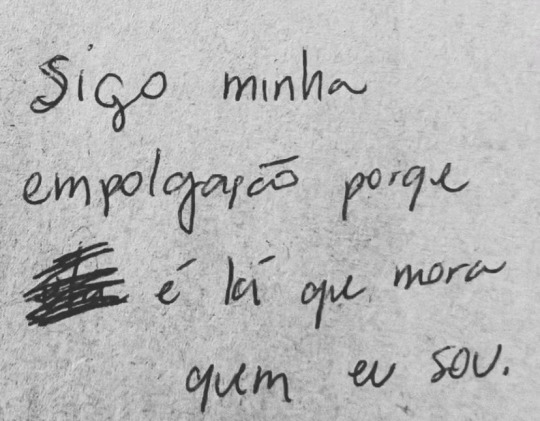 Sigo minha
empolgação porque
é lá que mora
quem eu sou.